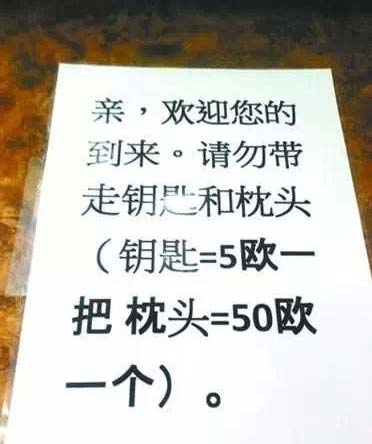 亲，欢迎您的
到来。请勿带
走钥匙和枕头
（钥匙=5欧一
把 枕头=50欧
一个）。